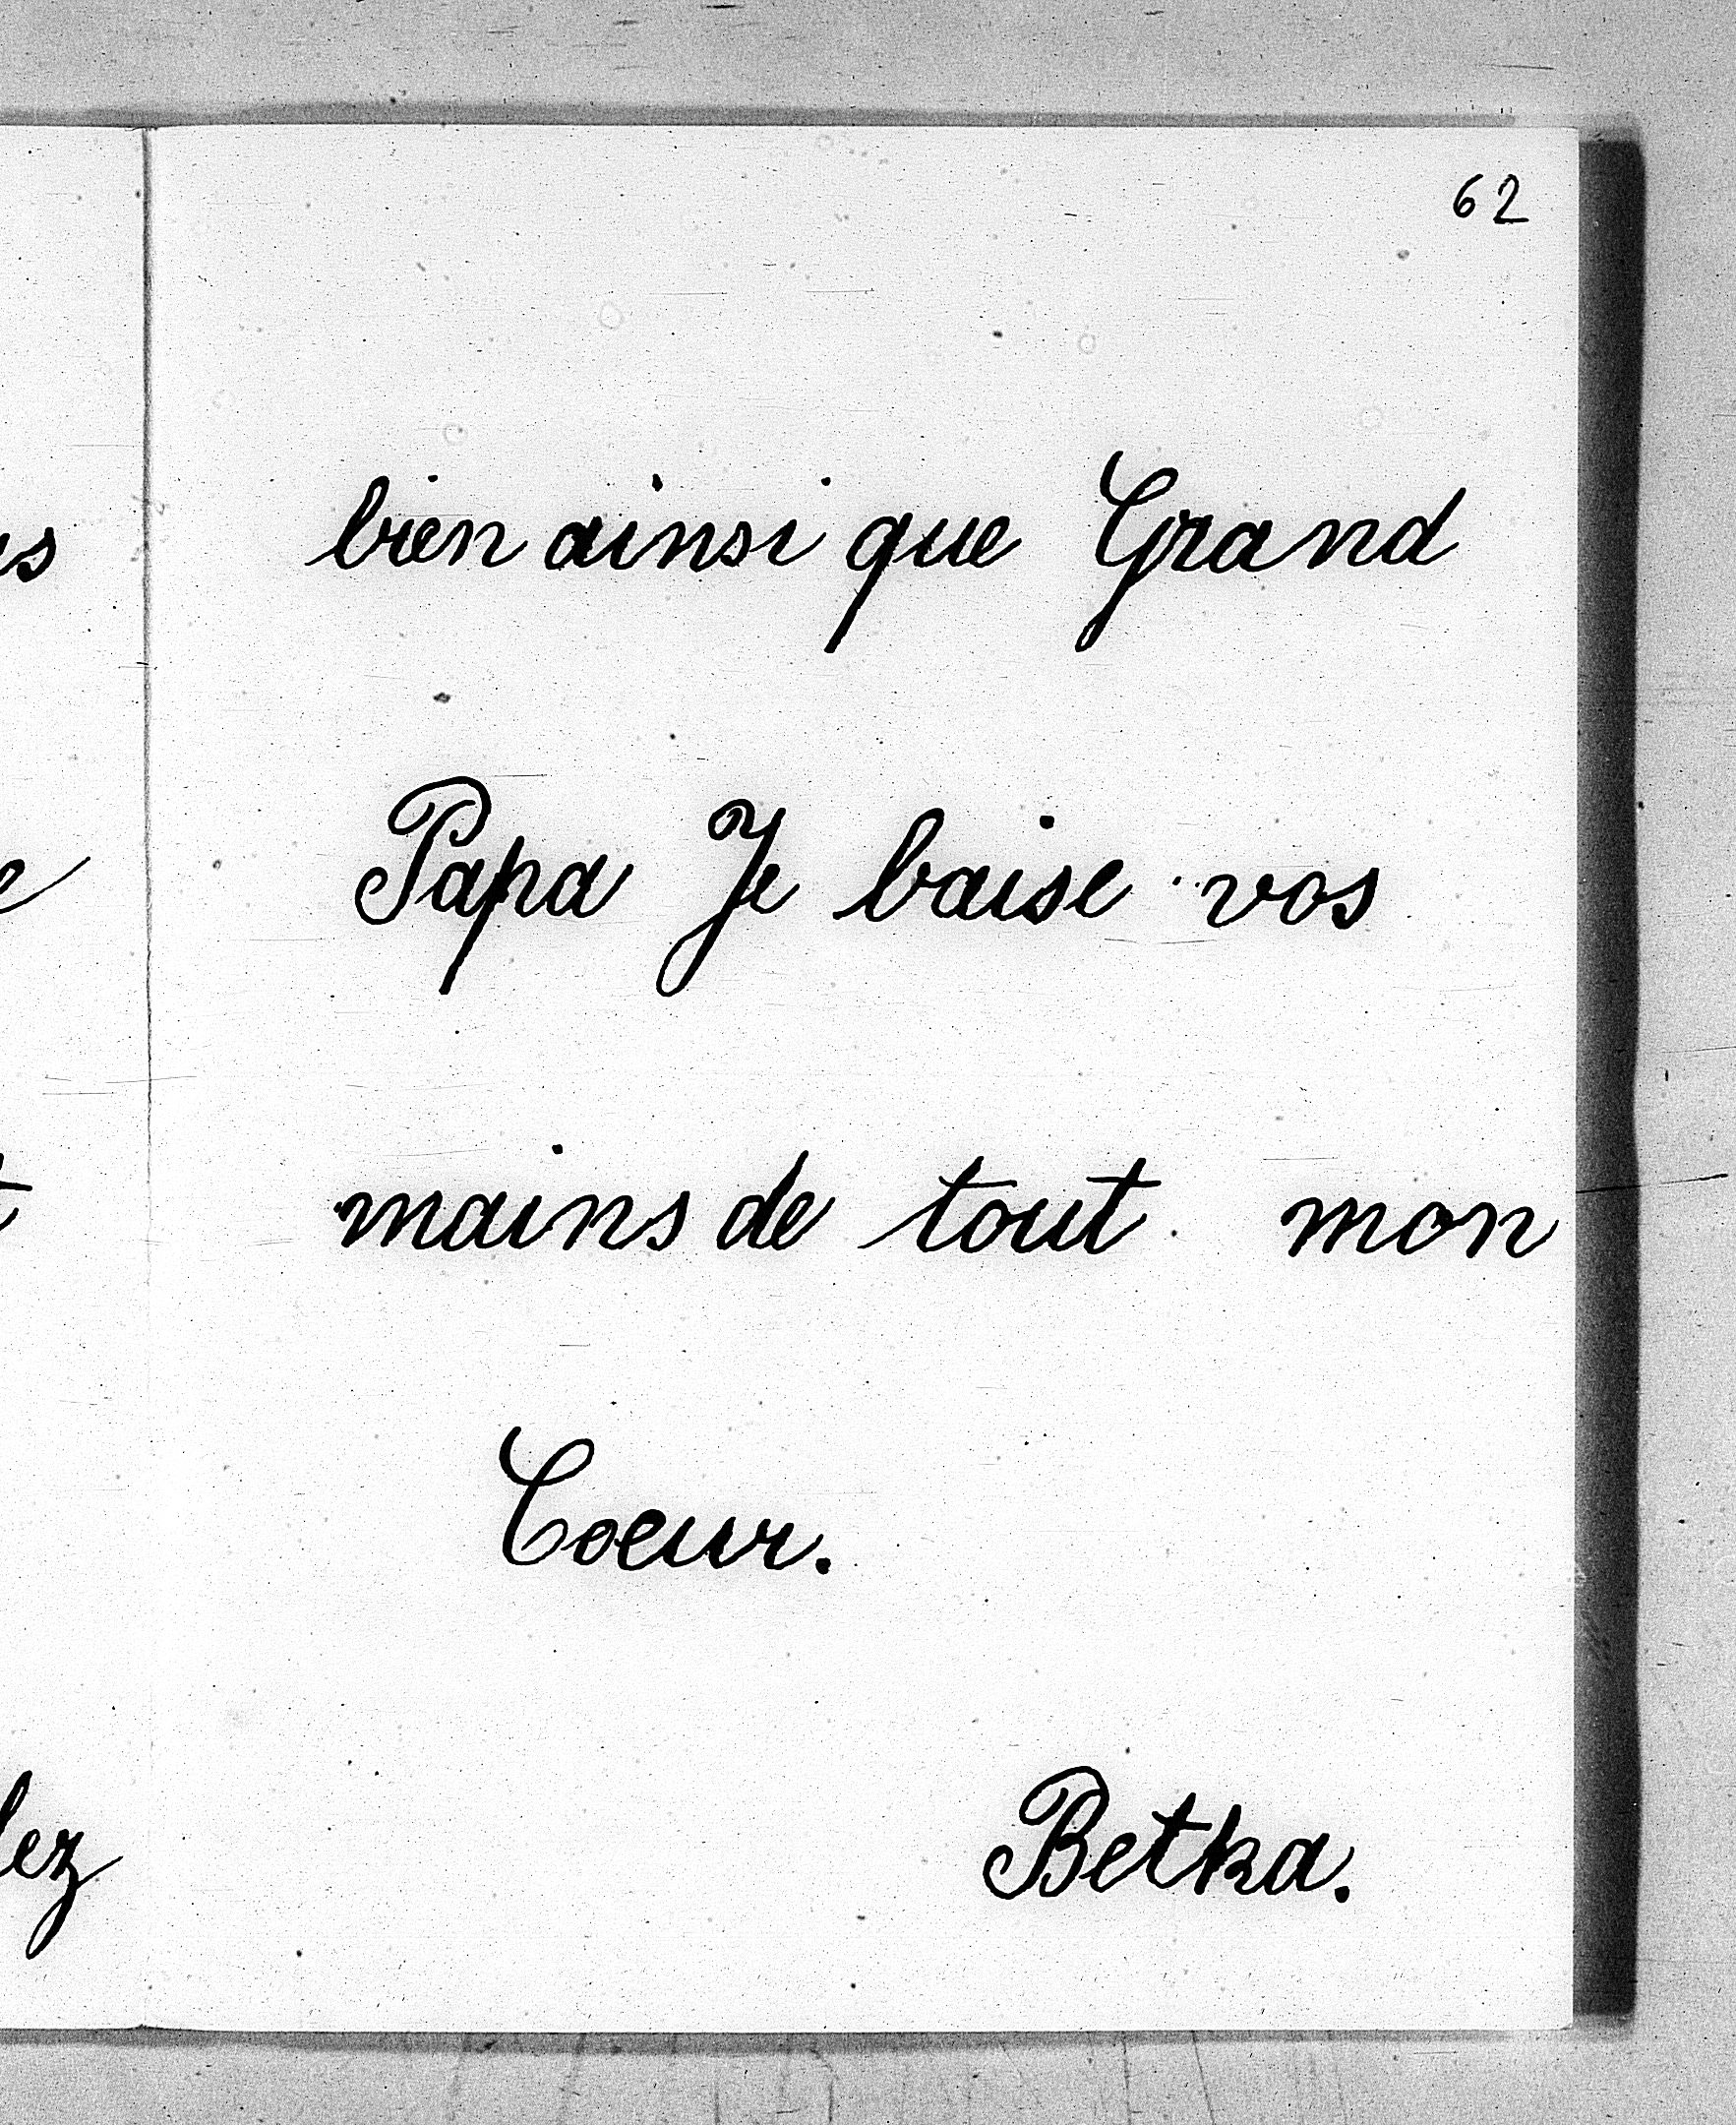 62
bien ainsi que Grand
Papa Je baise vos
mains de tout mon
Coeur.
Betka.